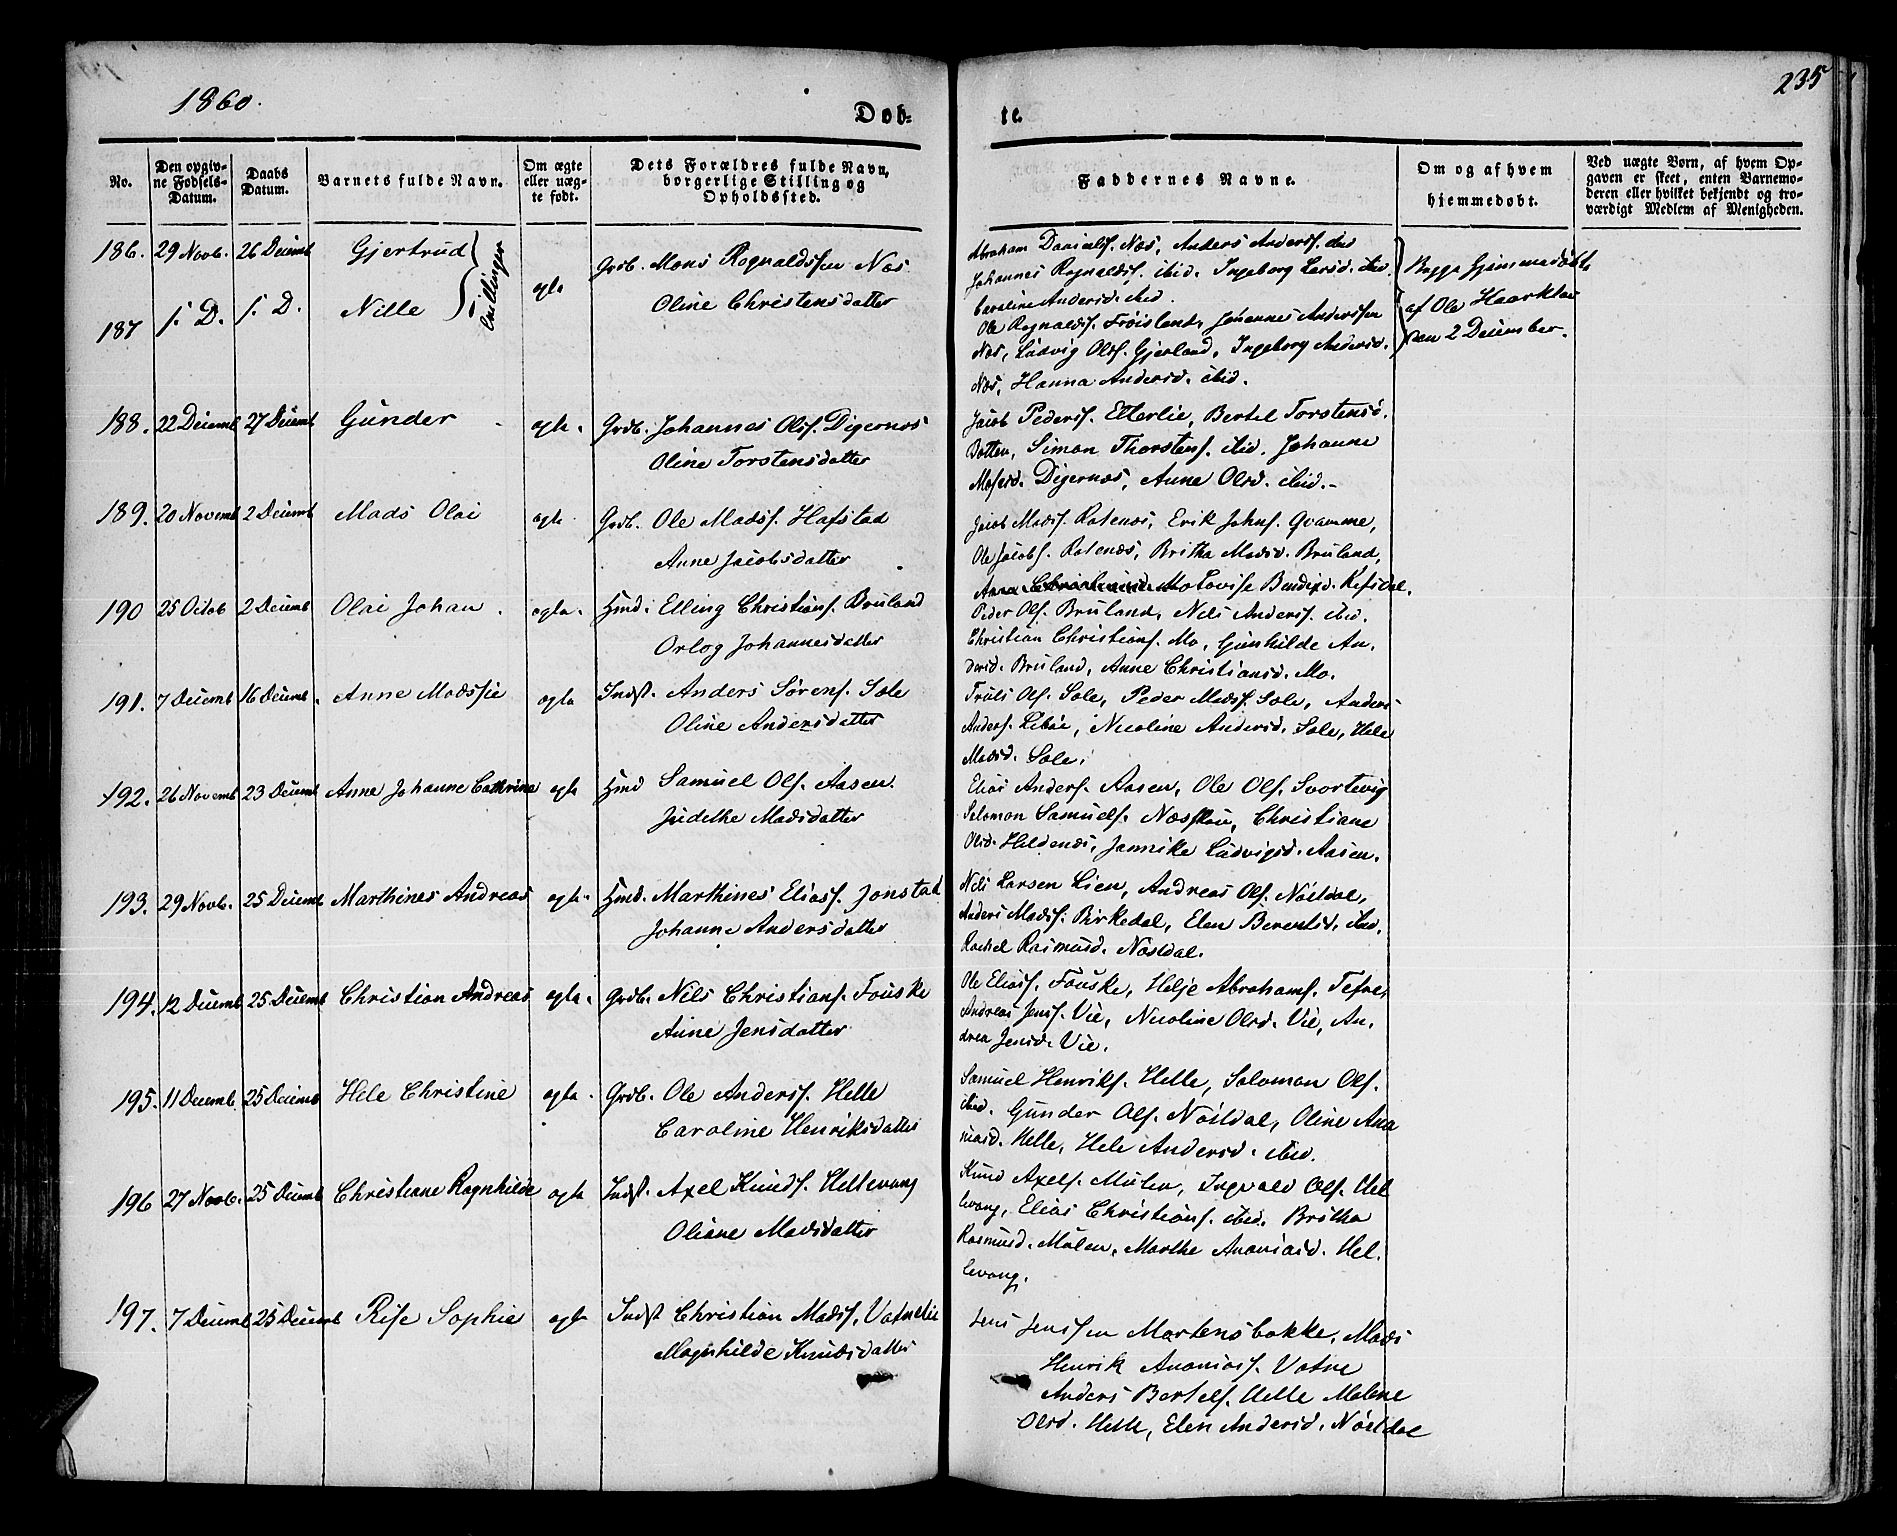 1860.
235
Døb-
te.
No.
Den opgiv-
ne Fødsels-
Datum.
Daabs
Datum.
Barnets fulde Navn.
Om ægte
eller uæg-
te født.
Dets Forældres fulde Navn,
borgerlige Stilling og
Opholdssted.
Faddernes Navne.
Om og af hvem
hjemmedøbt.
Ved uægte Børn, af hvem Op-
gaven er skeet, enten Barnemo-
deren eller hvilket bekjendt og tro-
værdigt Medlem af Menigheden.
186. 29 Novb. 26 Decemb Gjertrud
187 s. D. s. D. Nille
Tvillinger
ægte
Grdb. Mons Rognaldssen Næs
Oline Christensdatter
Abraham Danielss. Næs, Anders Anderss. ibid
Johannes Rognaldss. ibid. Ingeborg Larsd. ibid.
Caroline Andersd. ibid.
Ole Rognaldss. Frøisland, Johannes Anderssen
Næs, Ludvig Olss. Gjerland, Ingeborg Andersd.
Næs, Hanna Andersd. ibid.
Begge Hjemmedøbt
af Ole Haarklau
den 2 December.
188. 22 Decemb 27 Decemb Gunder ægte. Grdb. Johannes Olss. Digernæs
Oline Torstensdatter
Jacob Pederss. Etterlie, Bertel Torstenss.
Botten, Simon Thorstens. ibid. Johanne
Mosesd. Digernæs, Anne Olsd. ibid.
189. 20 Novemb 2 Decemb Mads Olai ægte Grdb. Ole Madss. Hafstad
Anne Jacobsdatter
Jacob Madss. Rotenæs, Erik Johns. Qvamme,
Ole Jacobs. Rotenæs, Britha Madsd. Bruland,
Lovise Bendixd. Refsdal.
190 25 Octob 2 Decemb Olai Johan ægte. Hmd. Elling Christians. Bruland
Orlog Johannesdatter
Peder Ols. Bruland, Nils Anderss. ibid.
Christian Christians. Mo, Gunhilde An-
dersd. Bruland, Anne Christiansd. Mo.
191. 7 Decemb 16 Decemb. Anne Madssie ægte Indst. Anders Sørens. Sole
Oline Andersdatter
Truls Ols. Sole, Peder Madss. Sole, Anders
Anderss. Libøe, Nicoline Andersd. Sole, Hele
Madsd. Sole,
192. 26 Novemb 23 Decemb Anne Johanne Cathrine ægte Hmd Samuel Ols. Aasen.
Judethe Madsdatter
Elias Anders. Aasen, Ole Ols. Svortevig
Salomon Samuels. Næsskou, Christiane
Olsd. Heldenæs, Jannike Ludvigsd. Aasen.
193. 29 Novb. 25 Decemb Marthines Andreas ægte. Hmd. Marthines Eliass. Jonstad
Johanne Andersdatter
Nils Larsen Lien, Andreas Ols. Nøstdal,
Anders Madss. Birkedal, Elen Berentsd. ibid.
Rachel Rasmusd. Nøstdal.
194. 12 Decemb 25 Decemb Christian Andreas ægte. Grdb. Nils Christians. Fouske
Anne Jensdatter
Ole Eliass. Fouske, Helje Abrahams. Tefre,
Andreas Jenss. Vie, Nicoline Olsd. Vie, An-
drea Jensd. Vie.
195. 11 Decemb. 25 Decemb Hele Christine ægte. Grdb. Ole Anderss. Helle
Caroline Henriksdatter
Samuel Henriks. Helle, Salomon Ols.
ibid. Gunder Ols. Nøstdal, Oline Ana
niasd. Helle, Hele Andersd. ibid.
196 27 Novb. 25 Decemb Christiane Ragnhilde ægte Indst. Axel Knuds. Hellevang
Oliane Madsdatter
Knud Axels. Mulen, Ingvald Ols. Hel
levang, Elias Christians. ibid. Britha
Rasmusd. Mulen, Marthe Ananiasd. Hel.
levang.
197. 7 Decemb 25 Decemb Rise Sophie ægte Indst Christian Madss. Vatnelie
Magnhilde Knudsdatter
Jens Jenssen Martensbakke, Mads
Henrik Ananiass. Vatne
Anders Bertels. Helle Malene
Olsd. Helle, Elen Andersd. Nøstdal